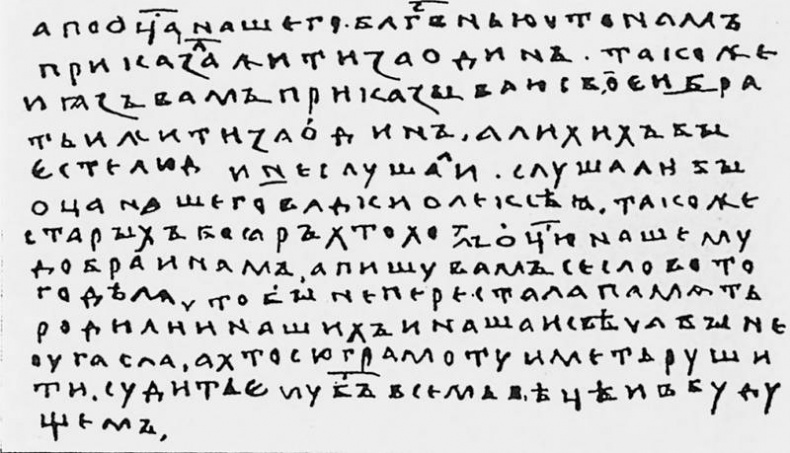 а по ѻц҃а нашего бл҃гвⷭ҇нью что намъ
приказаⷧ҇ жити заодинъ. тако же
и ꙗзъ вамъ приказываю своеи бра
тьи жити заодинъ. а лихихъ бы
есте люд и не слушаⷧ҇и. слушали бы
оц҃а нашего влдки олексѣꙗ. тако же
старыхъ бояръ хто хотѣлъ оц҃ю нашему
добра и намъ. а пишу вамъ се слово то
го дѣлѧ что бы не перестала памѧть
родилии нашихъ и наша и свѣча бы не
оугасла. а хто сю грамоту иметь руши
ти. судить ему бъ҃ в семь вѣцѣ и в буду
щемь.